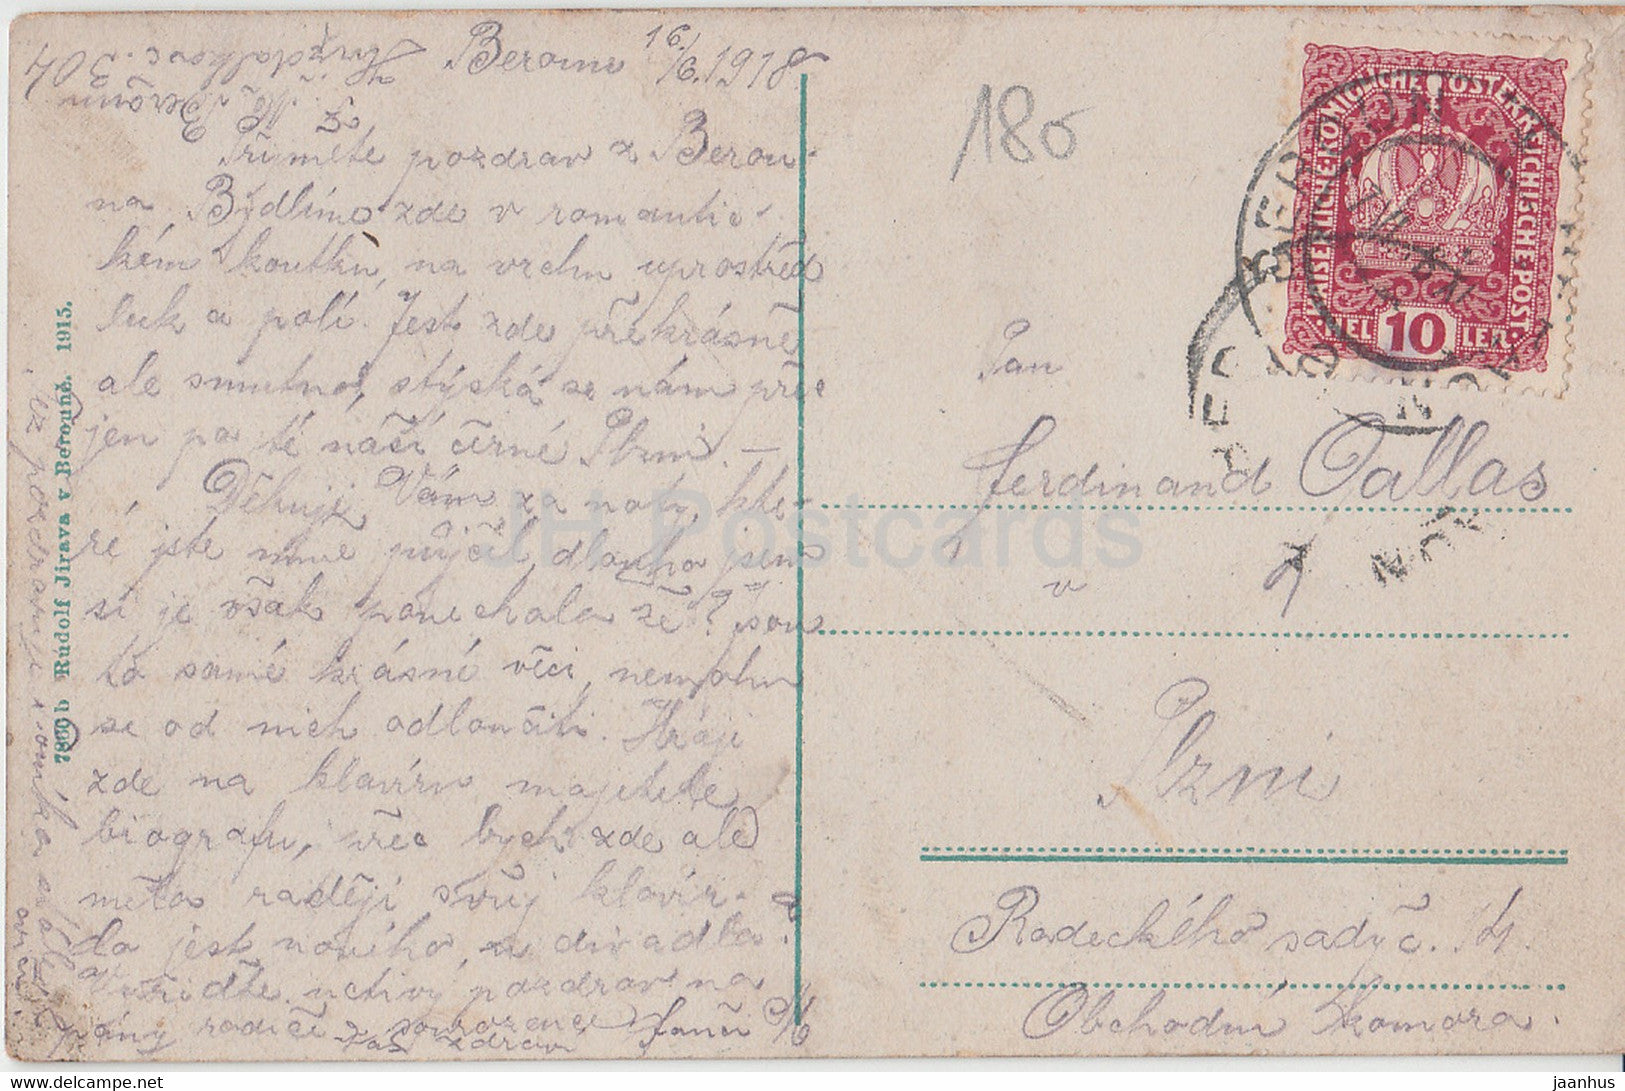 Beroun 16./6. 1918.
Přijměte pozdrav z Berou-
na. Bydlíme zde v romantic-
kém koutku, na vrchu uprostřed
luk a polí. Jest zde překrásně
ale smutno, stýská se nám přec
jen po té naší černé Plzni. —
Děkuji Vám za noty, kte-
ré jste mně půjčil, dlouho jsem
si je však ponechala že? Jsou
to samé krásné věci, nemohu
se od nich odloučiti. Hráji
zde na klavíru majitele
biografu, věc bych zde ale
měla raději svůj klavír.
Co jest nového u divadla?
Vyřiďte uctivý pozdrav na
pány rodiče a sourozence
Vás zdraví
7860 b Rudolf Jirava v Berouně. 1915.
180
KAISERLICHE·KÖNIGLICHE ÖSTERREICHISCHE·POST·
HEL 10 LER
BEROUN
Pan
Ferdinand Pallas
v
Plzni
Radeckého sady č. 14.
Obchodní komora.
JH Postcards
www.delcampe.net
jaanhus